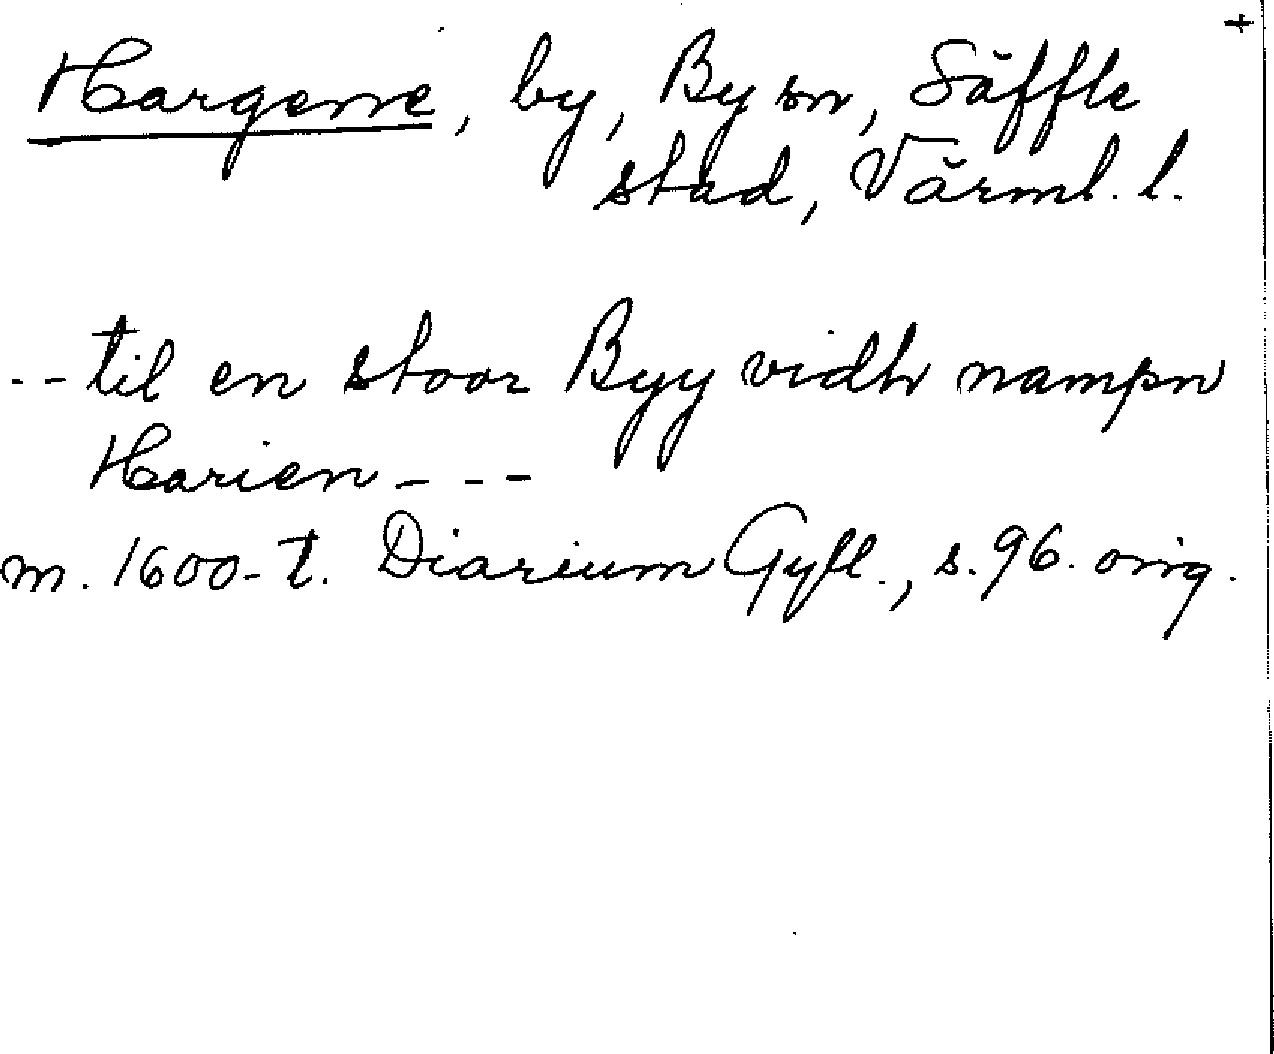 +
Hargene, by, By sn, Säffle
stad, Värml. l.
-- til en stoor Byy vidh nampn
Harien - - -
m. 1600-t. Diarium Gyll., s. 96. orig.